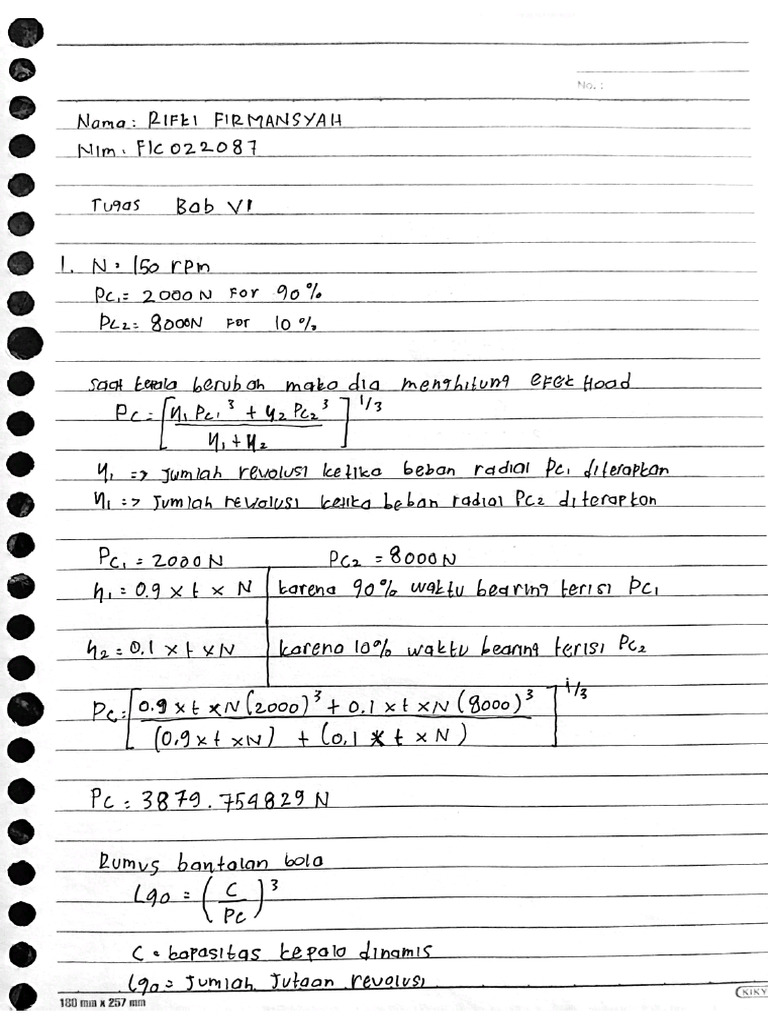 No. :
Nama : RIFKI FIRMANSYAH
Nim : F1C022087
Tugas Bab VI
1. N = 150 rpm
Pc1 = 2000 N FOR 90 %
Pc2 = 8000N FOR 10 %
saat kepala berubah maka dia menghitung efek load
Pc = [ η1 Pc1³ + η2 Pc2³ / η1 + η2 ] 1/3
η1 => jumlah revolusi ketika beban radial Pc1 diterapkan
η1 => jumlah revolusi ketika beban radial Pc2 diterapkan
Pc1 = 2000 N Pc2 = 8000 N
η1 = 0.9 x t x N karena 90% waktu bearing terisi Pc1
η2 = 0.1 x t x N karena 10% waktu bearing terisi Pc2
Pc = [ 0.9 x t x N (2000)³ + 0.1 x t x N (8000)³ / (0.9 x t x N) + (0.1 x t x N) ] 1/3
Pc = 3879.754829 N
Rumus bantalan bola
L90 = ( C / Pc )³
C = kapasitas kepala dinamis
L90 = Jumlah Jutaan revolusi
180 mm x 257 mm
KIKY